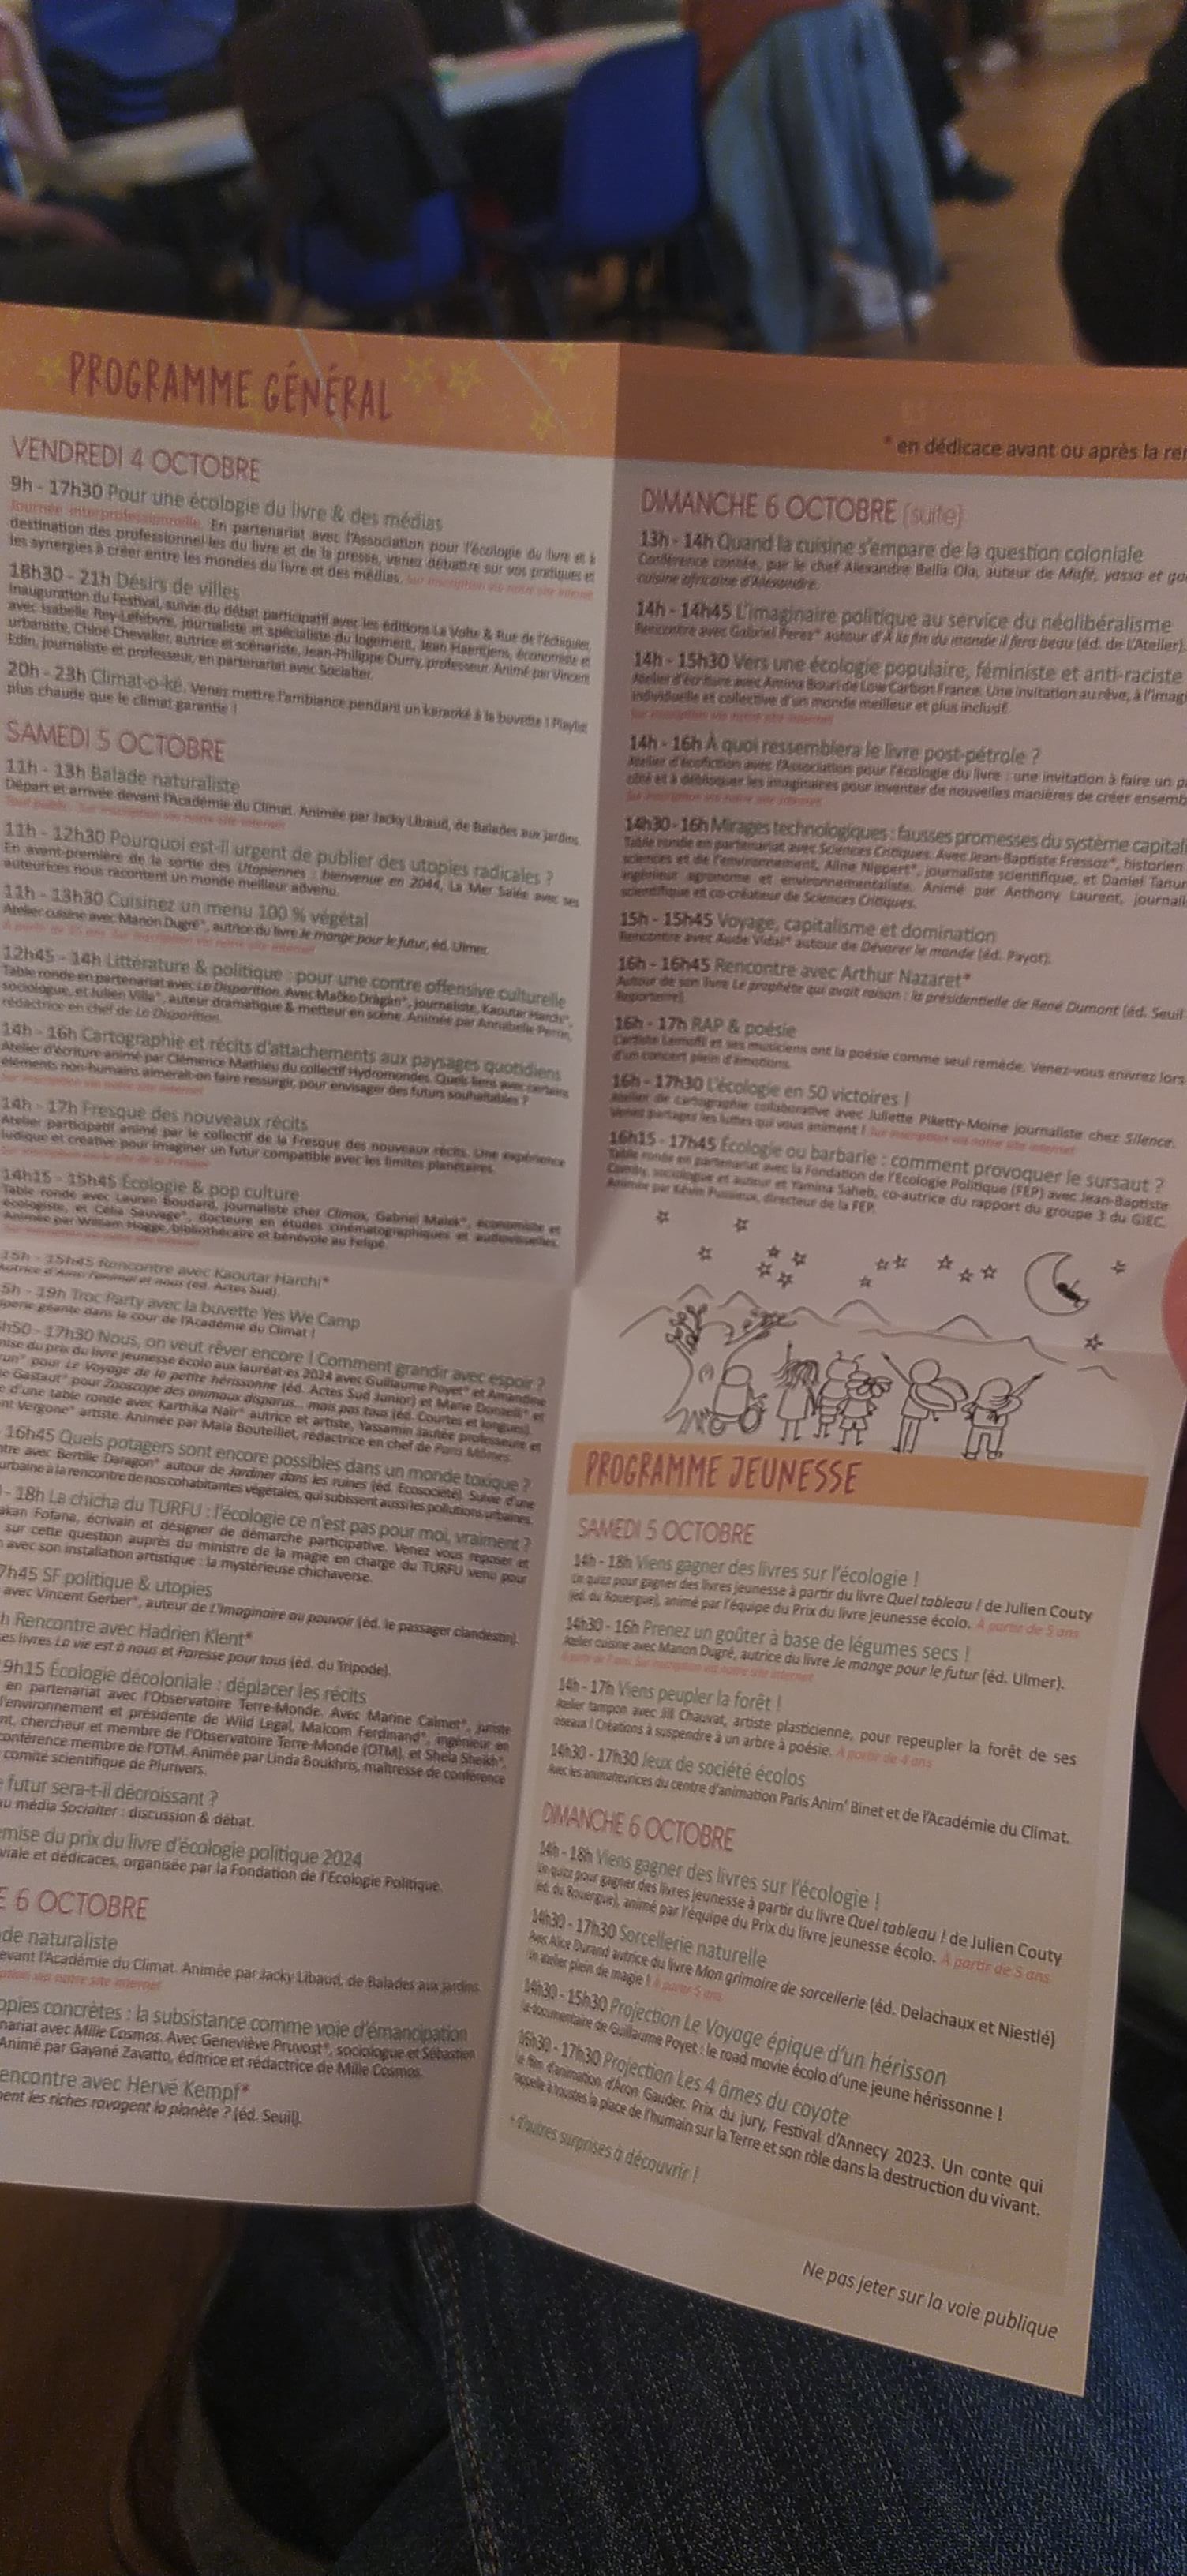 PROGRAMME GÉNÉRAL
VENDREDI 4 OCTOBRE
9h - 17h30 Pour une écologie du livre & des médias
Journée interprofessionnelle. En partenariat avec l'Association pour l'écologie du livre et à
destination des professionnel·les du livre et de la presse, venez débattre sur vos pratiques et
les synergies à créer entre les mondes du livre et des médias. Sur inscription via notre site internet
18h30 - 21h Désirs de villes
Inauguration du Festival, suivie du débat participatif avec les éditions La Volte & Rue de l'échiquier,
avec Isabelle Rey-Lefebvre, journaliste et spécialiste du logement, Jean Haentjens, économiste et
urbaniste, Chloé Chevalier, autrice et scénariste, Jean-Philippe Durry, professeur. Animé par Vincent
Edin, journaliste et professeur, en partenariat avec Socialter.
20h - 23h Climat-o-ké. Venez mettre l'ambiance pendant un karaoké à la buvette ! Playlist
plus chaude que le climat garantie !
SAMEDI 5 OCTOBRE
11h - 13h Balade naturaliste
Départ et arrivée devant l'Académie du Climat. Animée par Jacky Libaud, de Balades aux jardins.
Tout public. Sur inscription via notre site internet
11h - 12h30 Pourquoi est-il urgent de publier des utopies radicales ?
En avant-première de la sortie des Utopiennes : bienvenue en 2044, La Mer Salée avec ses
auteurices nous racontent un monde meilleur advenu.
11h - 13h30 Cuisinez un menu 100 % végétal
Atelier cuisine avec Manon Dugré*, autrice du livre Je mange pour le futur, éd. Ulmer.
Sur inscription via notre site internet
12h45 - 14h Littérature & politique : pour une contre offensive culturelle
Table ronde en partenariat avec La Disparition. Avec Mačko Dràgàn*, journaliste, Kaoutar Harchi*,
sociologue, et Julien Villa*, auteur dramatique & metteur en scène. Animée par Annabelle Perrin,
rédactrice en chef de La Disparition.
14h - 16h Cartographie et récits d'attachements aux paysages quotidiens
Atelier d'écriture animé par Clémence Mathieu du collectif Hydromondes. Quels liens avec certains
éléments non-humains aimerait-on faire ressurgir, pour envisager des futurs souhaitables ?
Sur inscription via notre site internet
14h - 17h Fresque des nouveaux récits
Atelier participatif animé par le collectif de la Fresque des nouveaux récits. Une expérience
ludique et créative pour imaginer un futur compatible avec les limites planétaires.
14h15 - 15h45 Écologie & pop culture
Table ronde avec Lauren Boudard, journaliste chez Climax, Gabriel Malek*, économiste et
écologiste, et Célia Sauvage*, docteure en études cinématographiques et audiovisuelles.
Animée par William Hogge, bibliothécaire et bénévole au Felipé.
15h - 15h45 Rencontre avec Kaoutar Harchi*
Autrice d'Ainsi l'animal et nous (éd. Actes Sud).
5h - 19h Troc Party avec la buvette Yes We Camp
géante dans la cour de l'Académie du Climat !
h50 - 17h30 Nous, on veut rêver encore ! Comment grandir avec espoir ?
mise du prix du livre jeunesse écolo aux lauréat·es 2024 avec Guillaume Poyet* et Amandine
run* pour Le Voyage de la petite hérissonne (éd. Actes Sud Junior) et Marie Donzelli* et
e Gastaut* pour Zooscope des animaux disparus... mais pas tous (éd. Courtes et longues).
e d'une table ronde avec Karthika Naïr* autrice et artiste, Yassamin professeure et
nt Vergone* artiste. Animée par Maïa Bouteillet, rédactrice en chef de Paris Mômes.
16h45 Quels potagers sont encore possibles dans un monde toxique ?
ntre avec Bertille Daragon* autour de Jardiner dans les ruines (éd. Ecosociété). Suivie d'une
urbaine à la rencontre de nos cohabitantes végétales, qui subissent aussi les pollutions urbaines.
- 18h La chicha du TURFU : l'écologie ce n'est pas pour moi, vraiment ?
akan Fofana, écrivain et désigner de démarche participative. Venez vous reposer et
sur cette question auprès du ministre de la magie en charge du TURFU venu pour
avec son installation artistique : la mystérieuse chichaverse.
7h45 SF politique & utopies
avec Vincent Gerber*, auteur de L'Imaginaire au pouvoir (éd. le passager clandestin).
h Rencontre avec Hadrien Klent*
es livres La vie est à nous et Paresse pour tous (éd. du Tripode).
9h15 Écologie décoloniale : déplacer les récits
en partenariat avec l'Observatoire Terre-Monde. Avec Marine Calmet*, juriste
l'environnement et présidente de Wild Legal, Malcom Ferdinand*, ingénieur en
nt, chercheur et membre de l'Observatoire Terre-Monde (OTM), et Shela Sheikh*,
conférence membre de l'OTM. Animée par Linda Boukhris, maîtresse de conférence
comité scientifique de Plurivers.
futur sera-t-il décroissant ?
au média Socialter : discussion & débat.
emise du prix du livre d'écologie politique 2024
viale et dédicaces, organisée par la Fondation de l'Ecologie Politique.
E 6 OCTOBRE
de naturaliste
evant l'Académie du Climat. Animée par Jacky Libaud, de Balades aux jardins.
ption via notre site internet
opies concrètes : la subsistance comme voie d'émancipation
nariat avec Mille Cosmos. Avec Geneviève Pruvost*, sociologue et Sébastien
Animé par Gayané Zavatto, éditrice et rédactrice de Mille Cosmos.
encontre avec Hervé Kempf*
ent les riches ravagent la planète ? (éd. Seuil).
* en dédicace avant ou après la rer
DIMANCHE 6 OCTOBRE (suite)
13h - 14h Quand la cuisine s'empare de la question coloniale
Conférence contée, par le chef Alexandre Bella Ola, auteur de Mafé, yassa et go
cuisine africaine d'Alexandre.
14h - 14h45 L'imaginaire politique au service du néolibéralisme
Rencontre avec Gabriel Perez* autour d'À la fin du monde il fera beau (éd. de L'Atelier).
14h - 15h30 Vers une écologie populaire, féministe et anti-raciste
Atelier d'écriture avec Amina Bouri de Low Carbon France. Une invitation au rêve, à l'imag
individuelle et collective d'un monde meilleur et plus inclusif.
Sur inscription via notre site internet
14h - 16h À quoi ressemblera le livre post-pétrole ?
Atelier d'écofiction avec l'Association pour l'écologie du livre : une invitation à faire un p
côté et à débloquer les imaginaires pour inventer de nouvelles manières de créer ensemb
Sur inscription via notre site internet
14h30 - 16h Mirages technologiques : fausses promesses du système capitali
Table ronde en partenariat avec Sciences Critiques. Avec Jean-Baptiste Fressoz*, historien
sciences et de l'environnement, Aline Nippert*, journaliste scientifique, et Daniel Tanur
ingénieur agronome et environnementaliste. Animé par Anthony Laurent, journali
scientifique et co-créateur de Sciences Critiques.
15h - 15h45 Voyage, capitalisme et domination
Rencontre avec Aude Vidal* autour de Dévorer le monde (éd. Payot).
16h - 16h45 Rencontre avec Arthur Nazaret*
Autour de son livre Le prophète qui avait raison : la présidentielle de René Dumont (éd. Seuil
Reporterre).
16h - 17h RAP & poésie
L'artiste et ses musiciens ont la poésie comme seul remède. Venez-vous enivrez lors
d'un concert plein d'émotions.
16h - 17h30 L'écologie en 50 victoires !
Atelier de cartographie collaborative avec Juliette Piketty-Moine journaliste chez Silence.
Venez partagez les luttes qui vous animent ! Sur inscription via notre site internet
16h15 - 17h45 Écologie ou barbarie : comment provoquer le sursaut ?
Table ronde en partenariat avec la Fondation de l'Ecologie Politique (FEP) avec Jean-Baptiste
Comby, sociologue et auteur et Yamina Saheb, co-autrice du rapport du groupe 3 du GIEC.
Animée par Kévin Puisieux, directeur de la FEP.
PROGRAMME JEUNESSE
SAMEDI 5 OCTOBRE
14h - 18h Viens gagner des livres sur l'écologie !
Un quizz pour gagner des livres jeunesse à partir du livre Quel tableau ! de Julien Couty
(éd. du Rouergue), animé par l'équipe du Prix du livre jeunesse écolo. À partir de 5 ans
14h30 - 16h Prenez un goûter à base de légumes secs !
Atelier cuisine avec Manon Dugré, autrice du livre Je mange pour le futur (éd. Ulmer).
À partir de 7 ans. Sur inscription via notre site internet
14h - 17h Viens peupler la forêt !
Atelier tampon avec Jill Chauvat, artiste plasticienne, pour repeupler la forêt de ses
oiseaux ! Créations à suspendre à un arbre à poésie. À partir de 4 ans
14h30 - 17h30 Jeux de société écolos
Avec les animateurices du centre d'animation Paris Anim' Binet et de l'Académie du Climat.
DIMANCHE 6 OCTOBRE
14h - 18h Viens gagner des livres sur l'écologie !
Un quizz pour gagner des livres jeunesse à partir du livre Quel tableau ! de Julien Couty
(éd. du Rouergue), animé par l'équipe du Prix du livre jeunesse écolo. À partir de 5 ans
14h30 - 17h30 Sorcellerie naturelle
Avec Alice Durand autrice du livre Mon grimoire de sorcellerie (éd. Delachaux et Niestlé)
Un atelier plein de magie ! À partir 5 ans
14h30 - 15h30 Projection Le Voyage épique d'un hérisson
Le documentaire de Guillaume Poyet : le road movie écolo d'une jeune hérissonne !
16h30 - 17h30 Projection Les 4 âmes du coyote
Le film d'animation d'Áron Gauder. Prix du jury, Festival d'Annecy 2023. Un conte qui
rappelle à toustes la place de l'humain sur la Terre et son rôle dans la destruction du vivant.
+ d'autres surprises à découvrir !
Ne pas jeter sur la voie publique